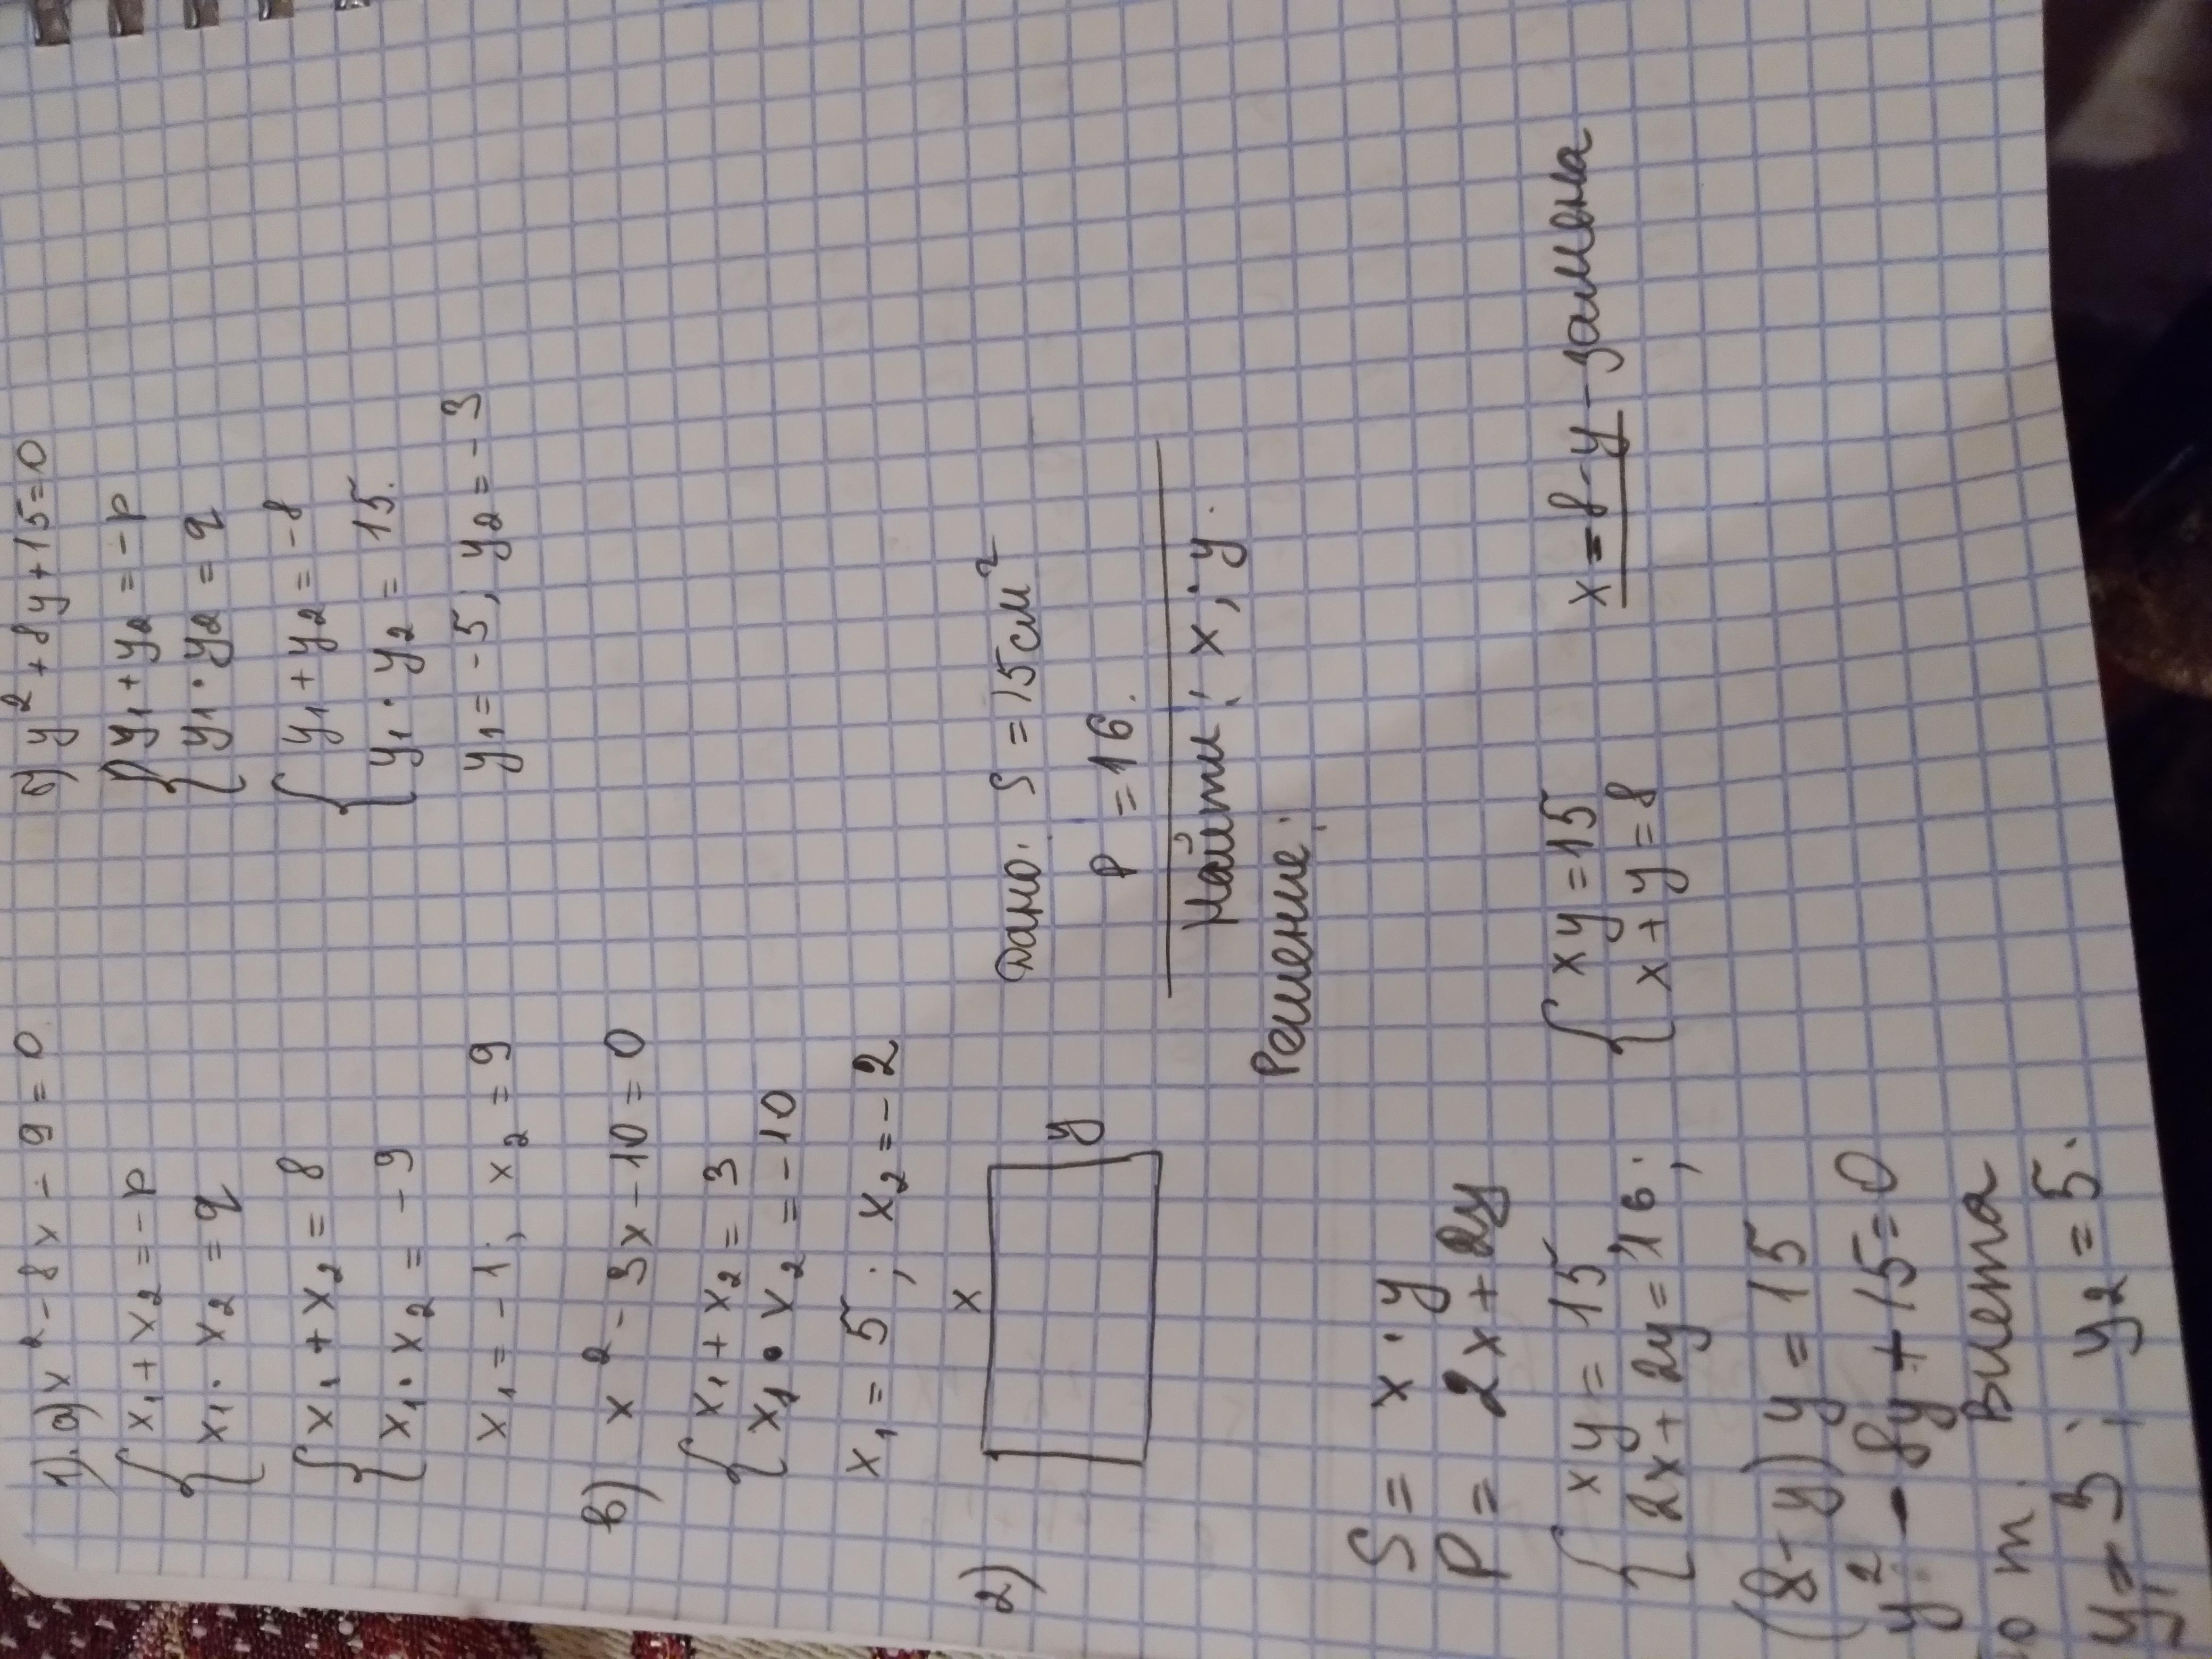 1). а) x² - 8x - 9 = 0
{ x₁ + x₂ = -p
x₁ · x₂ = q
{ x₁ + x₂ = 8
x₁ · x₂ = -9
x₁ = -1; x₂ = 9
б) y² + 8y + 15 = 0
{ y₁ + y₂ = -p
y₁ · y₂ = q
{ y₁ + y₂ = -8
y₁ · y₂ = 15.
y₁ = -5; y₂ = -3
в) x² - 3x - 10 = 0
{ x₁ + x₂ = 3
x₁ · x₂ = -10
x₁ = 5; x₂ = -2
2)
x
y
Дано: S = 15 см²
P = 16.
Найти: x; y.
Решение:
S = x · y
P = 2x + 2y
{ xy = 15
2x + 2y = 16;
{ xy = 15
x + y = 8
x = 8 - y - замена
(8 - y) y = 15
y² - 8y + 15 = 0
по т. Виета
y₁ = 3; y₂ = 5.